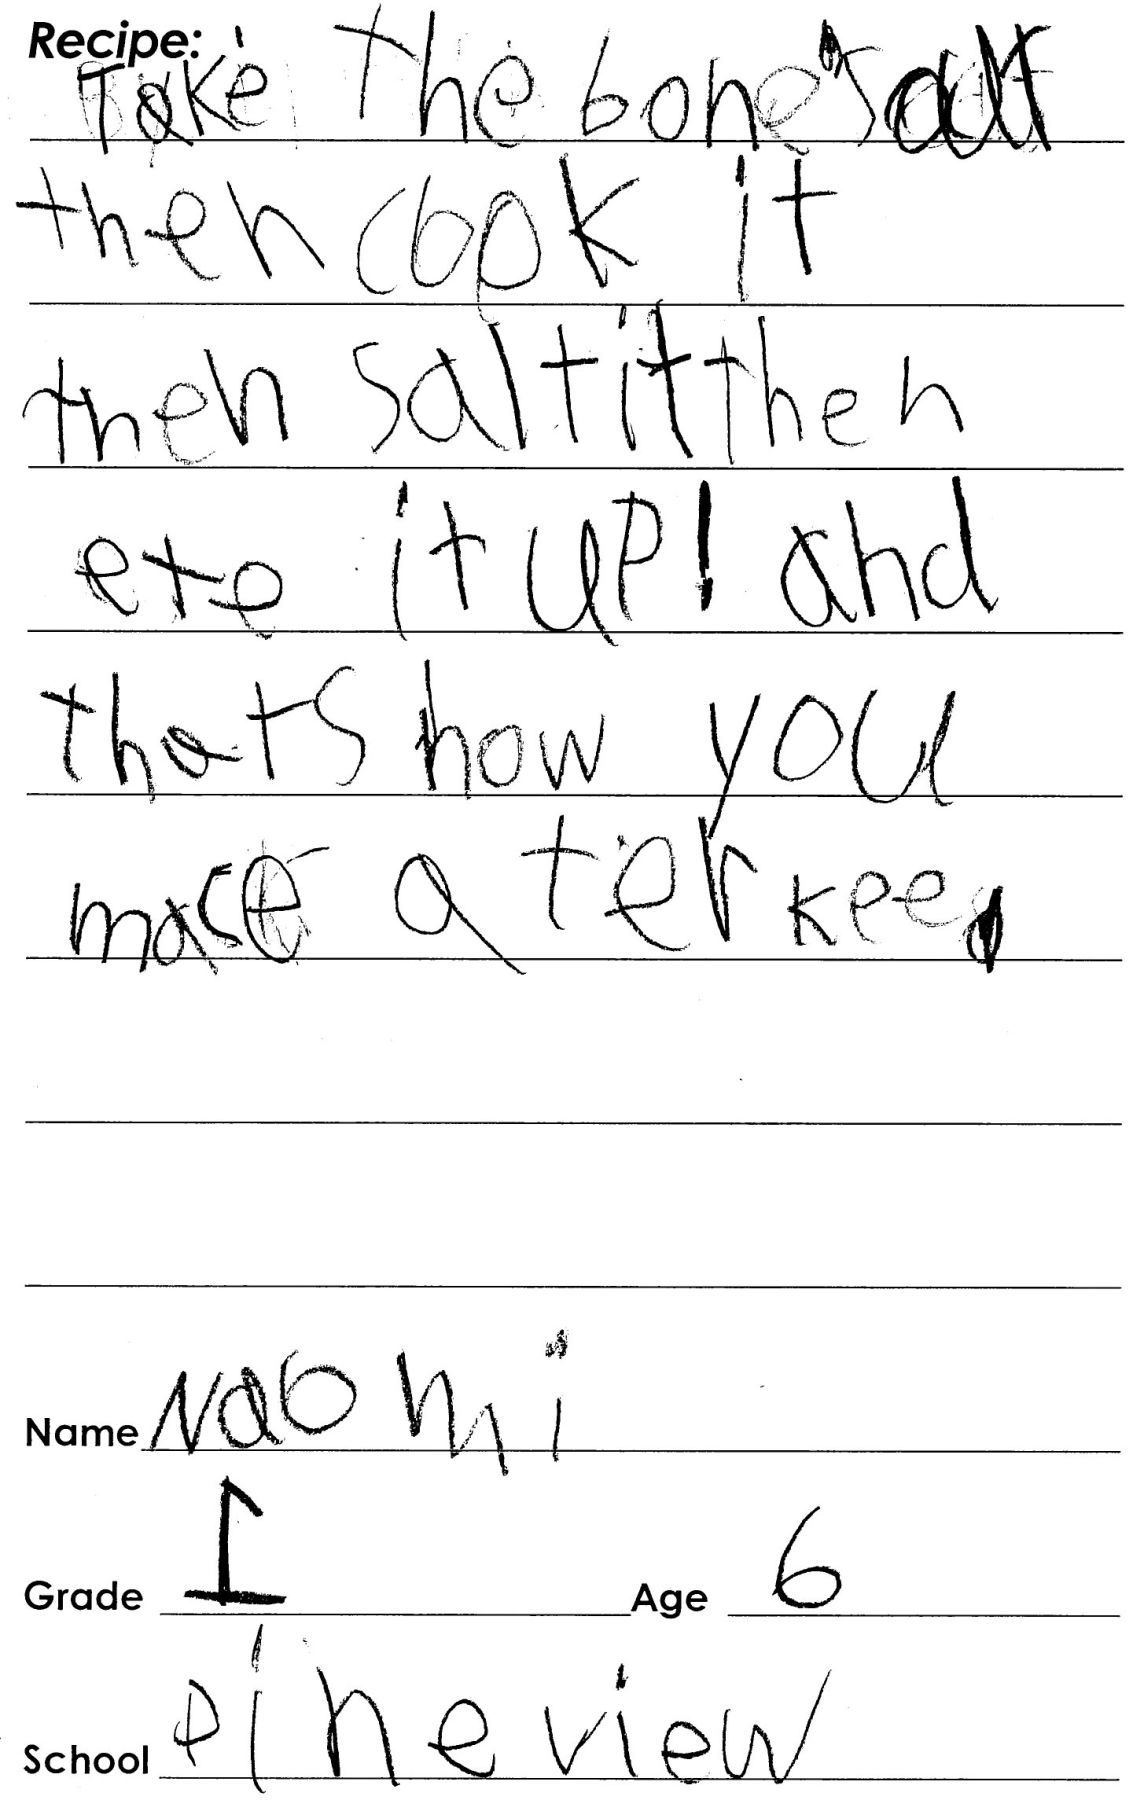 Recipe:
Take the bone's out
then cook it
then salt it then
ete it up! and
thats how you
mace a terkee.
Name Naomi
Grade 1 Age 6
School Pineview